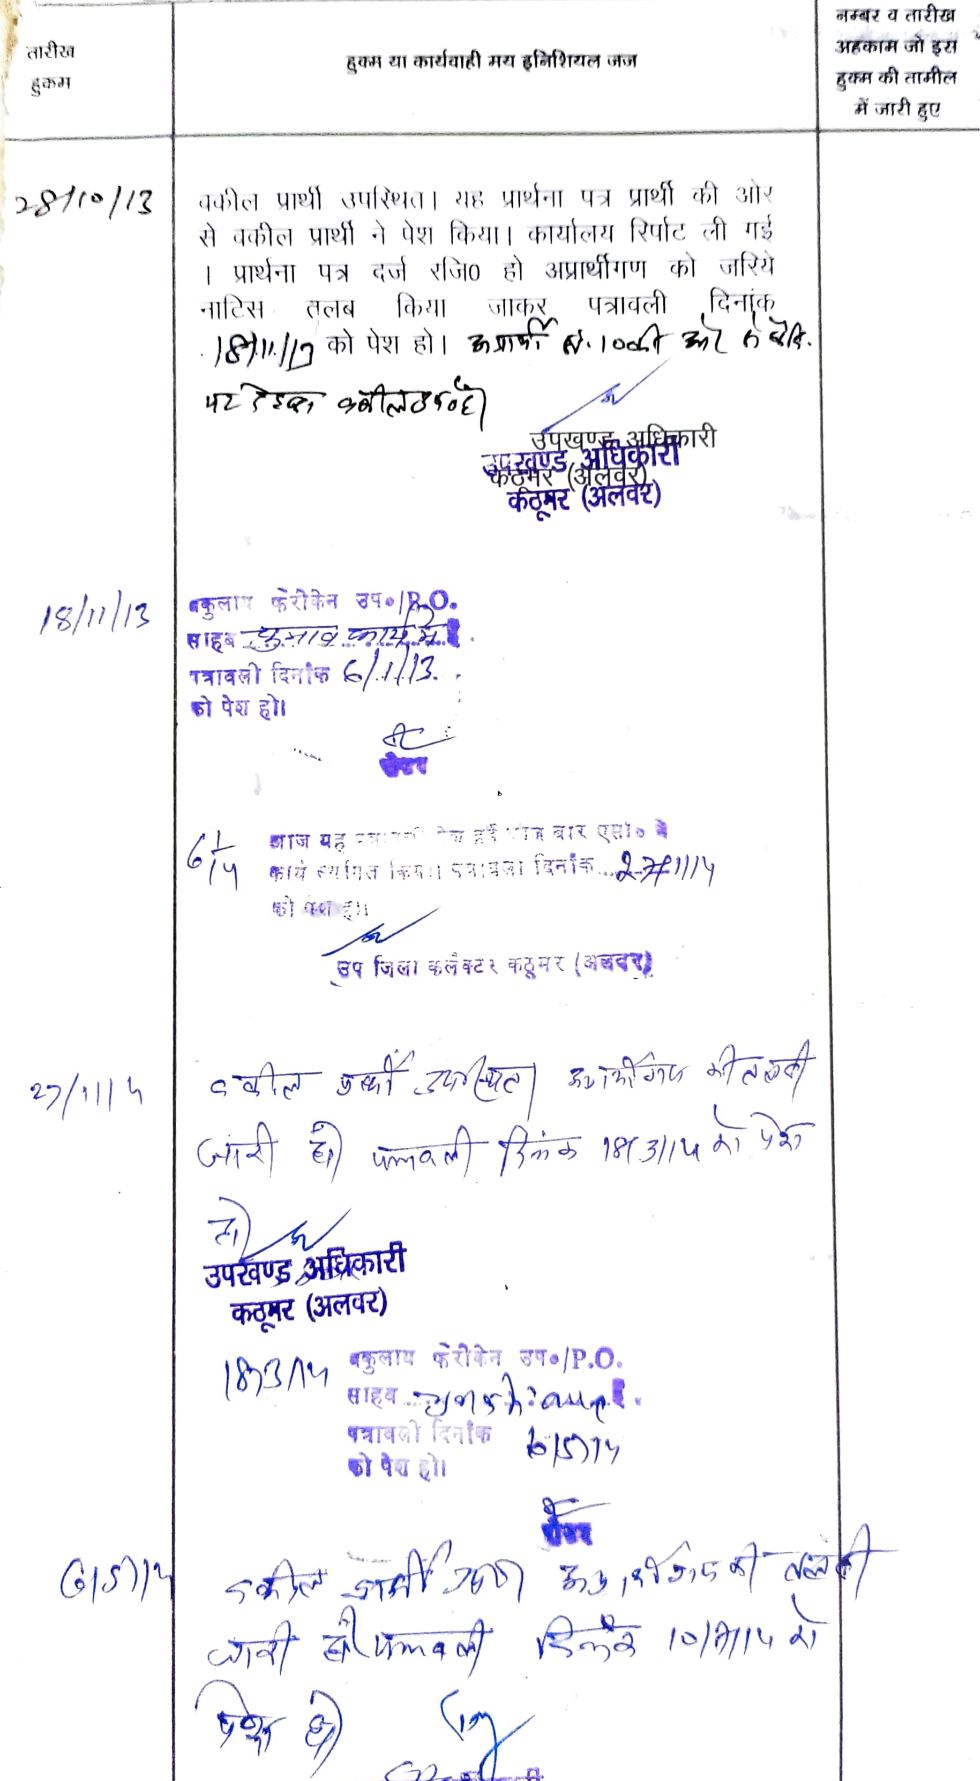 तारीख
हुकम
हुक्म या कार्यवाही मय इनिशियल जज
नम्बर व तारीख
अहकाम जो इस
हुक्म की तामील
में जारी हुए
28/10/13
वकील प्रार्थी उपस्थित। यह प्रार्थना पत्र प्रार्थी की ओर
से वकील प्रार्थी ने पेश किया। कार्यालय रिर्पाट ली गई
। प्रार्थना पत्र दर्ज रजि0 हो अप्रार्थीगण को जरिये
नाटिस तलब किया जाकर पत्रावली दिनांक
18/11/13 को पेश हो। अप्रार्थी सं. 1 की ओर से
उपखण्ड अधिकारी
कठूमर (अलवर)
उपखण्ड अधिकारी
कठूमर (अलवर)
18/11/13
वकुलाय फेरीकेन उप०/P.O.
साहब चुनाव कार्य में है.
पत्रावली दिनांक 6/1/13
को पेश हो।
रीडर
6/1/14
आज यह पत्रावली पेश हुई बार एसो० ने
कार्य स्थगित किया। पत्रावली दिनांक 27/1/14
को पेश हो।
उप जिला कलेक्टर कठूमर (अलवर)
27/1/14
वकील प्रार्थी उपस्थित। अप्रार्थीगण की तलबी
जारी हो। पत्रावली दिनांक 18/3/14 को पेश
हो।
उपखण्ड अधिकारी
कठूमर (अलवर)
18/3/14
वकुलाय फेरीकेन उप०/P.O.
साहब
पत्रावली दिनांक 6/5/14
को पेश हो।
रीडर
6/5/14
वकील प्रार्थी उप० अप्रार्थीगण की तलबी
जारी हो। पत्रावली दिनांक 10/7/14 को
पेश हो।